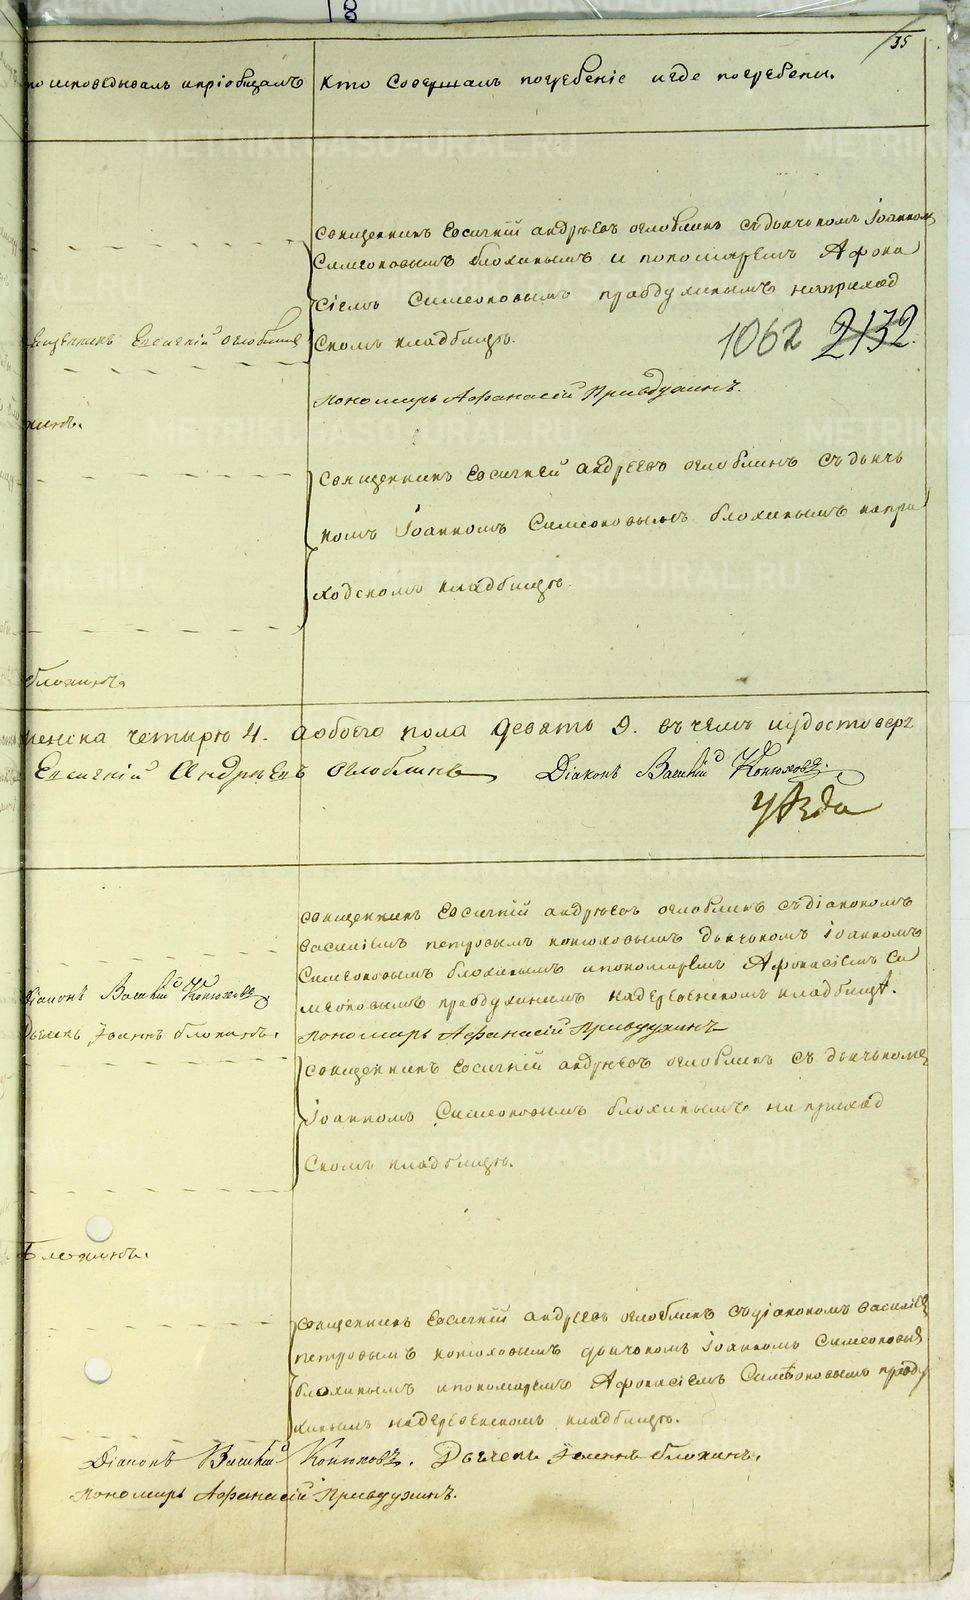 35
по исповедывалъ и пріобщалъ
Кто совершалъ погребеніе и где погребены.
Священникъ Евсигній Андрѣевъ Оглоблинъ съ дьячкомъ Іоанномъ
Симеоновымъ Блохинымъ и пономаремъ Афона
сіемъ Симеоновымъ Правдухинымъ на приход
скомъ кладбищѣ.
Евсигній Оглоблинъ
1062 2132.
Пономарь Афанасій Правдухинъ.
Священникъ Евсигней Андреевъ Оглоблинъ съ дьячь
комъ Іоанномъ Симеоновымъ Блохинымъ на при
ходскомъ кладбищѣ.
Блохинъ.
женска четыре 4. а обоего пола девять 9. въ чемъ и удостовере
Евсигній Андрѣевъ Оглоблинъ Діаконъ Василій Конюховъ.
Уѣзда
Священникъ Евсигній Андрѣевъ Оглоблинъ съ діакономъ
Василіемъ Петровымъ Конюховымъ дьячкомъ Іоанномъ
Симеоновымъ Блохинымъ и пономаремъ Афонасіемъ Си
меоновымъ Правдухинымъ на деревенскомъ кладбищѣ.
Діаконъ Василій Конюховъ
Дьячекъ Іоаннъ Блохинъ.
Пономарь Афанасій Правдухинъ
Священникъ Евсигній Андрѣевъ Оглоблинъ съ дьячькомъ
Іоанномъ Симеоновымъ Блохинымъ на приход
скомъ кладбищѣ.
Блохинъ.
Священникъ Евсигній Андреевъ Оглоблинъ съ діакономъ Василіем
Петровымъ Конюховымъ дьячкомъ Іоанномъ Симеоновым
Блохинымъ и пономаремъ Афонасіемъ Симѣоновымъ Правду
хинымъ на деревенскомъ кладбищѣ.
Діаконъ Василій Конюховъ. Дьячекъ Іоаннъ Блохинъ.
Пономарь Афанасій Правдухинъ.
METRIKI.GASO-URAL.RU